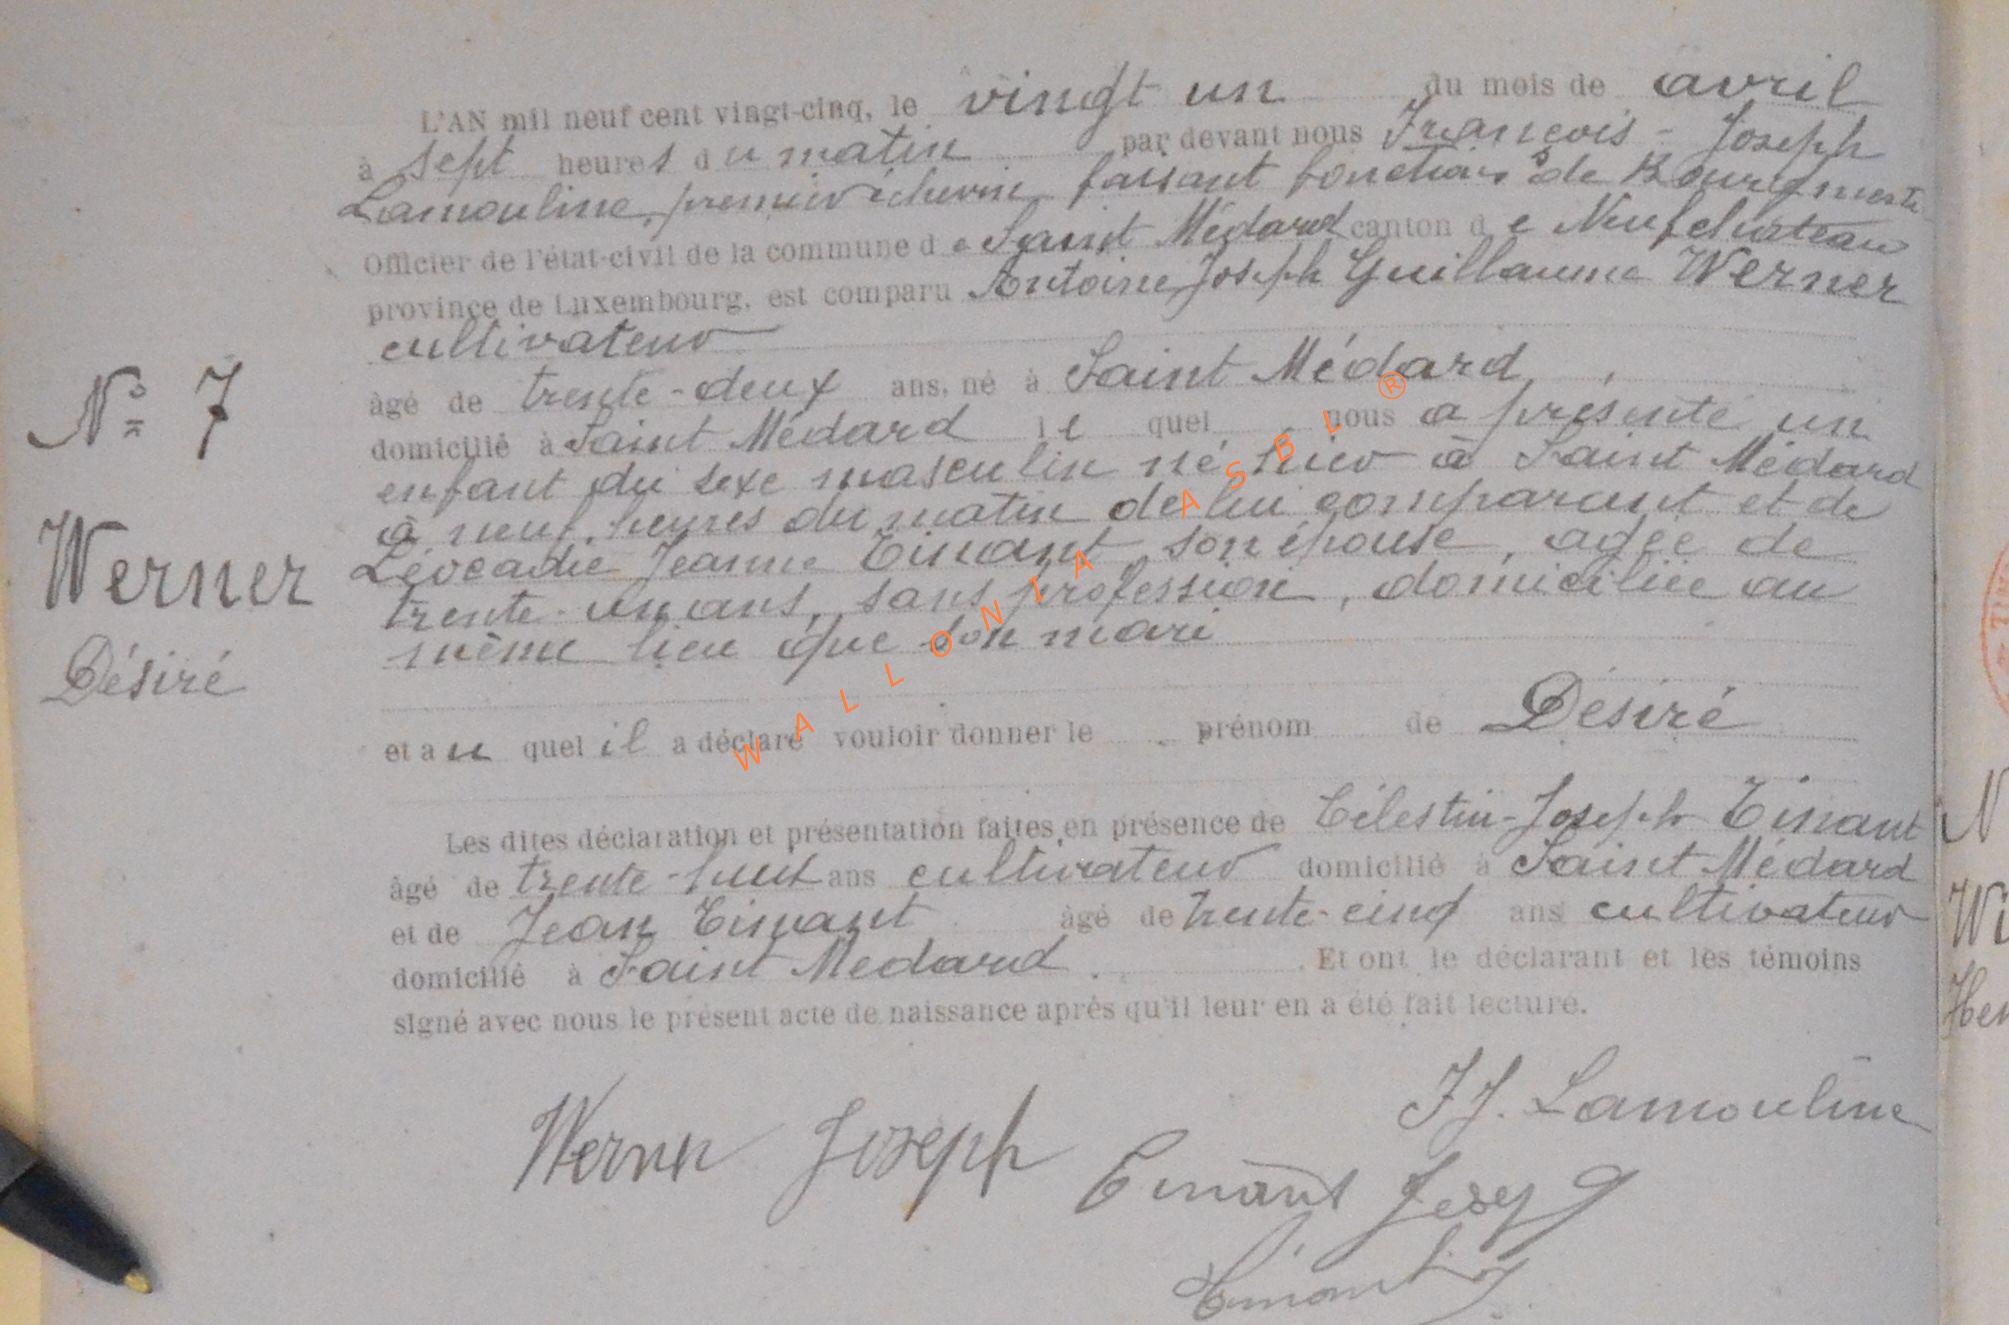 L'AN mil neuf cent vingt-cinq, le vingt un du mois de avril
à sept heures du matin par devant nous François-Joseph
Lamouline, premier échevin faisant fonctions de Bourgmestre
Officier de l'état-civil de la commune de Saint Médard canton de Neufchateau
province de Luxembourg, est comparu Antoine Joseph Guillaume Werner
cultivateur
âgé de trente-deux ans, né à Saint Médard,
domicilié à Saint Médard lequel nous a présenté un
enfant du sexe masculin né hier à Saint Médard
à neuf heures du matin de lui comparant et de
Léocadie Jeanne Tinant son épouse, agée de
trente-un ans, sans profession, domiciliée au
même lieu que son mari
et au quel il a déclaré vouloir donner le prénom de Désiré
Les dites déclaration et présentation faites en présence de Célestin-Joseph Tinant
âgé de trente-huit ans cultivateur domicilié à Saint Médard
et de Jean Tinant âgé de trente-cinq ans cultivateur
domicilié à Saint Médard. Et ont le déclarant et les témoins
signé avec nous le présent acte de naissance après qu'il leur en a été fait lecture.
N° 7
Werner
Désiré
F J. Lamouline
Werner Joseph
Tinant
Tinant
WALLONIA ASBL ®
N
Wi
Hen